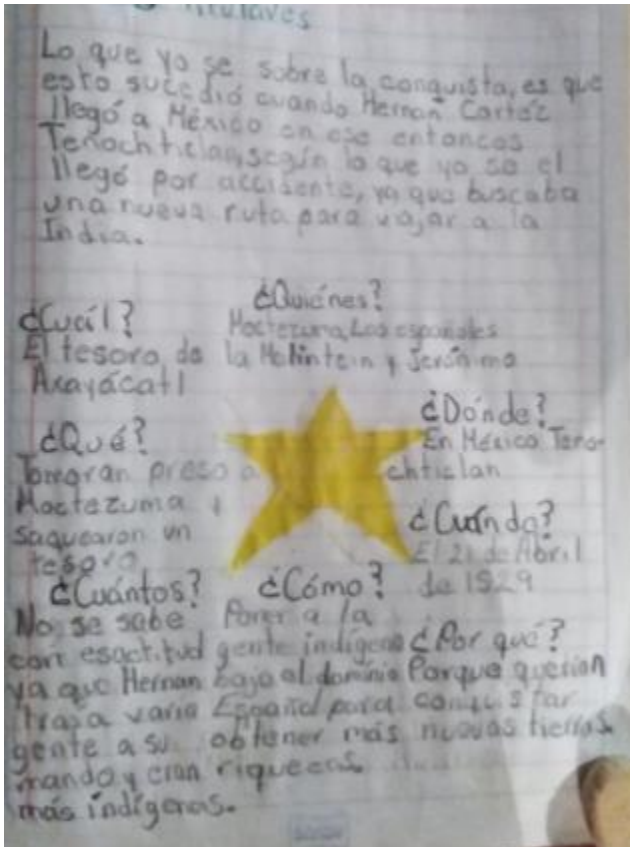 Lo que yo se sobre la conquista, es que
esto sucedió cuando Hernan Cortéz
llegó a México en ese entonces
Tenochticlan, según lo que yo se el
llegó por accidente, ya que buscaba
una nueva ruta para viajar a la
India.
¿Quiénes?
Moctezuma, Los españoles
la y Jerónimo
¿Cuál?
El tesoro de
Axayácatl
¿Dónde?
En México Teno-
chticlan
¿Qué?
Tomaron preso a
Moctezuma y
saquearon un
tesoro
¿Cuándo?
El 21 de Abril
de 1529
¿Cuántos?
No se sabe
con esactitud
ya que Hernan
traja varia
gente a su
mando y eran
más indígenas.
¿Cómo?
Poner a la
gente indígena
bajo el dominio
Español para
obtener más
riquezas.
¿Por qué?
Porque querian
conquistar
nuevas tierras.